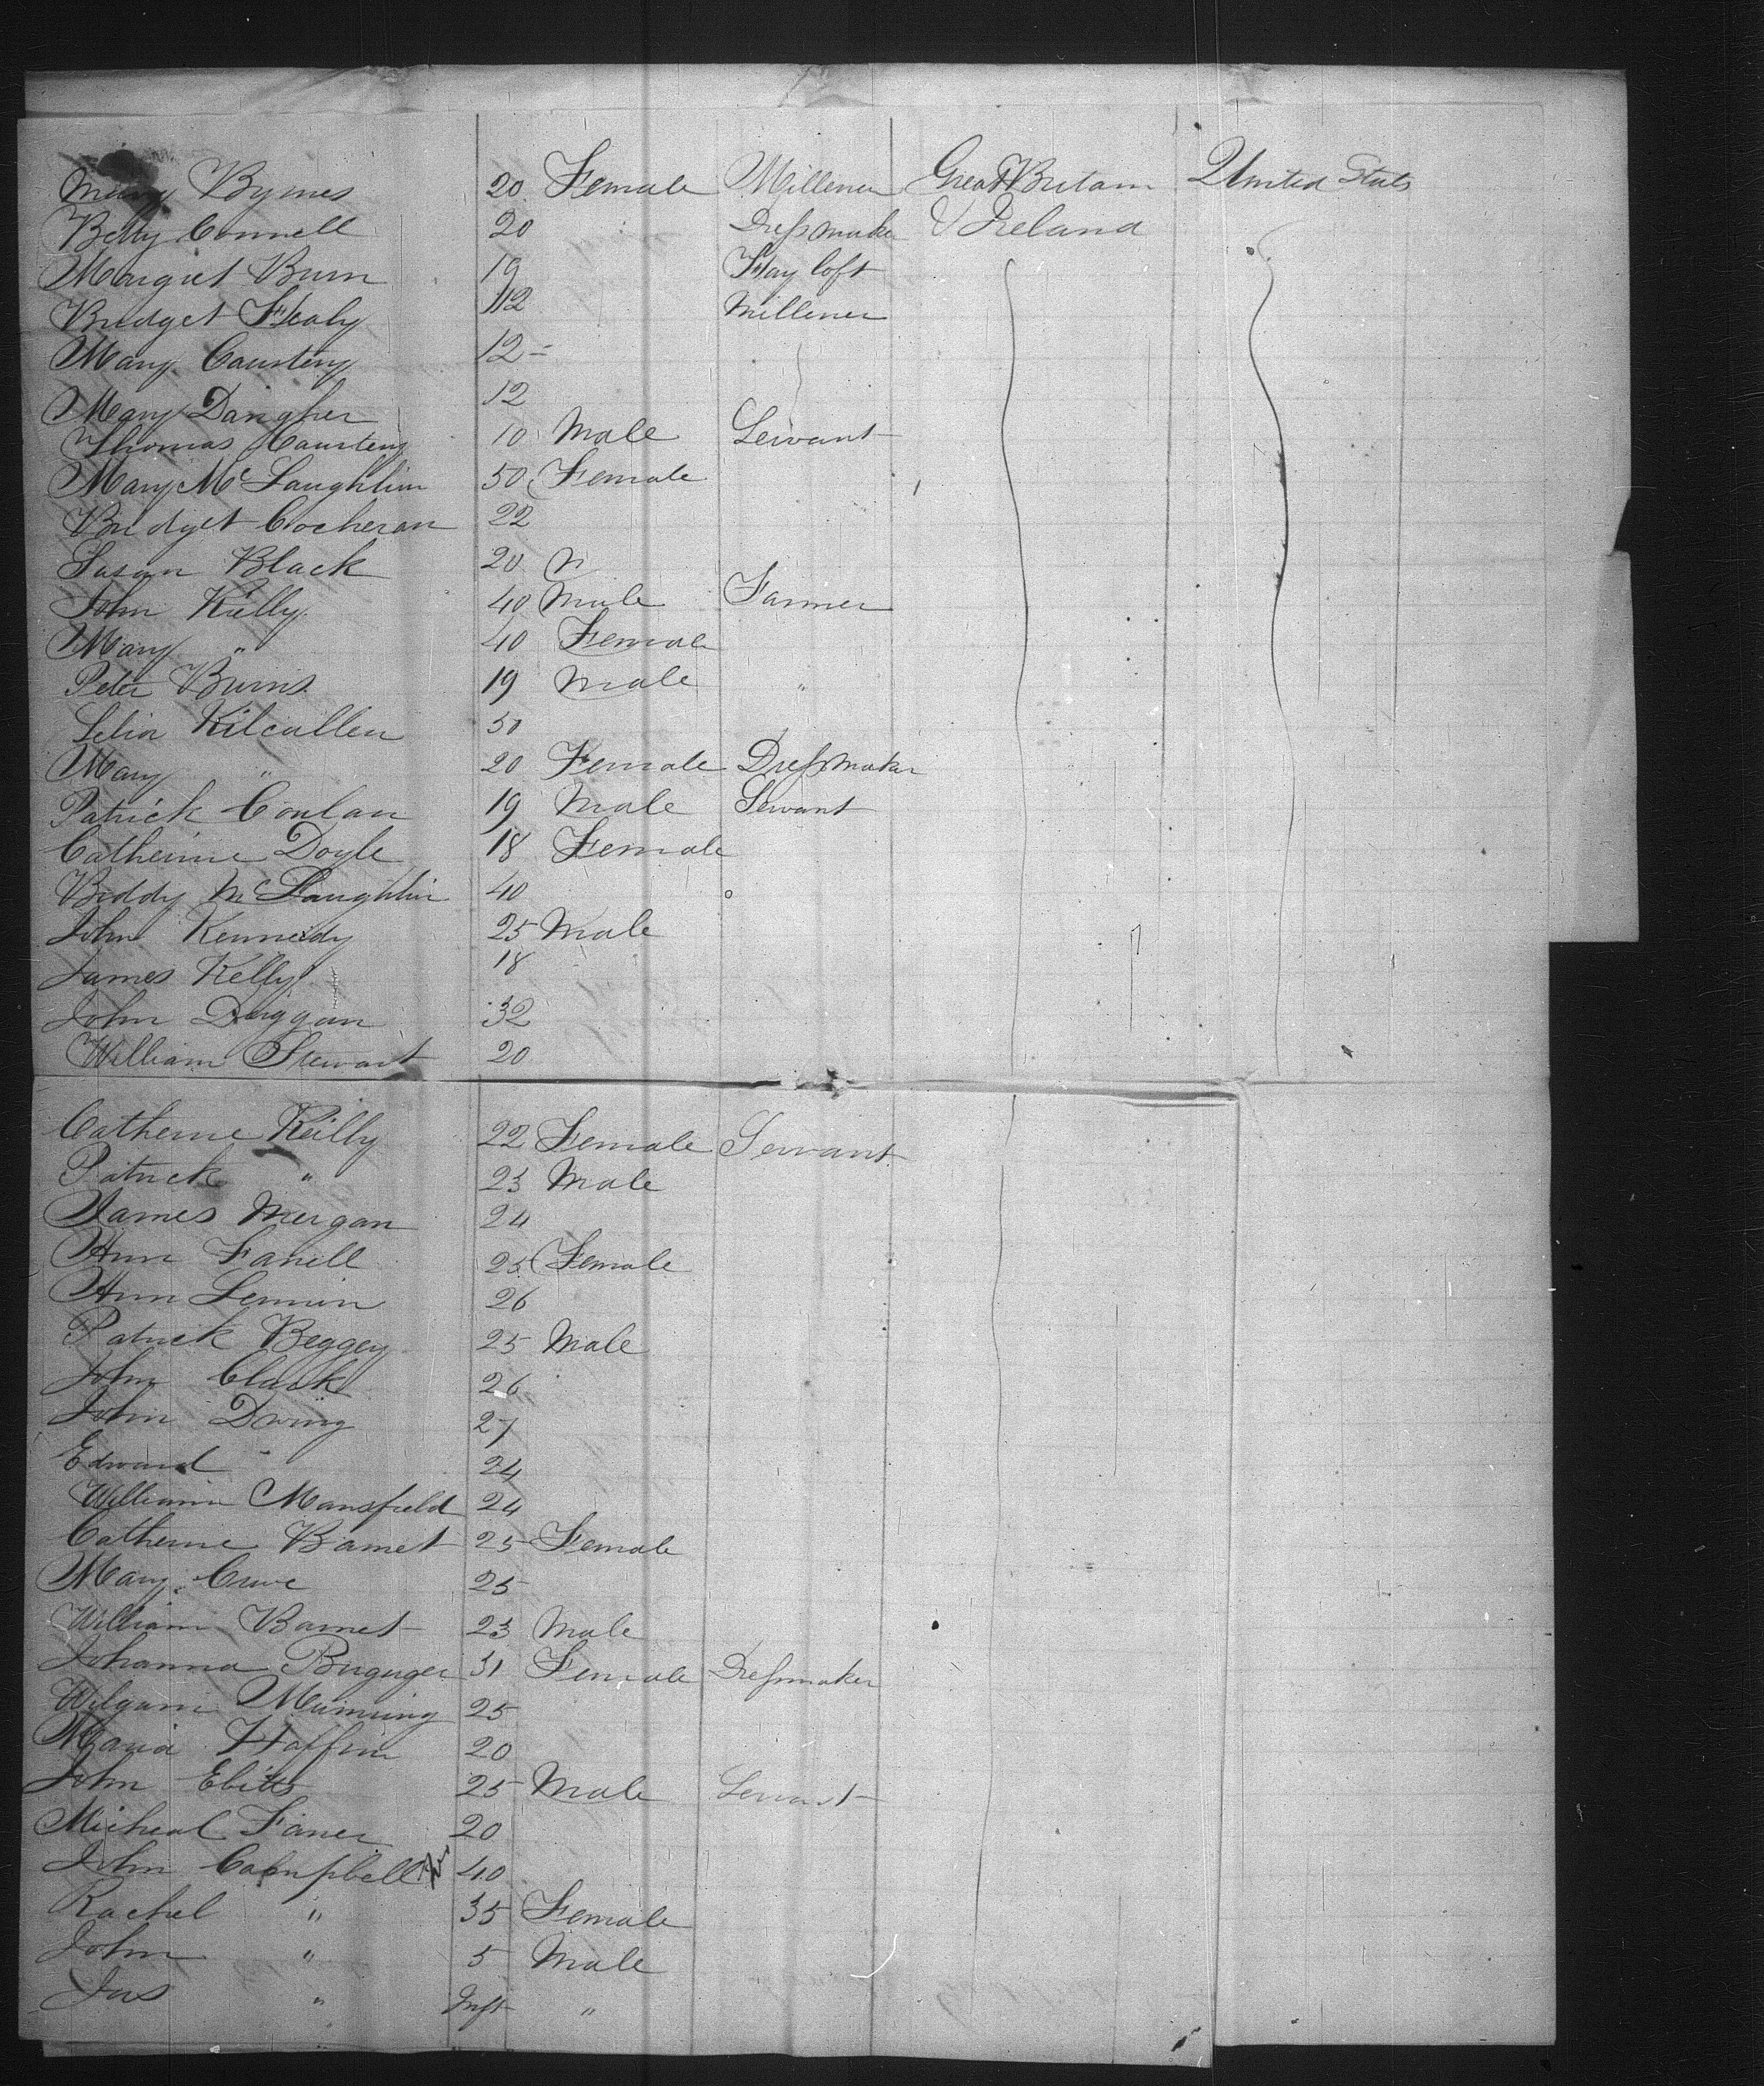 Mary Byrnes 20 Female Millener Great Britain United Stats
Betty Connell 20 Dressmaker & Ireland
Margret Burn 19
Bridget Healy 12 Millener
Mary Courteny 12
Mary 12
Thomas Courteny 10 Male Servant
Mary McLaughlin 50 Female
Bridget Cocheran 22
Susan Black 20 "
John Rielly 40 Male Farmer
Mary " 40 Female
Peter Burns 19 Male "
Kilcullen 50
Mary " 20 Female Dressmaker
Patrick Conlan 19 Male Servant
Catherine Doyle 18 Female
Biddy McLaughlin 40
John Kennedy 25 Male
James Kelly 18
John Duggan 32
William Stewart 20
Catherine Reilly 22 Female Servant
Patrick " 23 Male
James Morgan 24
Ann Farrell 25 Female
Ann 26
Patrick Beggey 25 Male
John Clark 26
John 27
Edward " 24
William Mansfield 24
Catherine Barnet 25 Female
Mary 25
William Barnet 23 Male
Johanna 31 Female Dressmaker
25
Maria 20
John Ebitts 25 Male Servant
Micheal 20
John Campbell 40
Rachel " 35 Female
John " 5 Male
Jas " Inft "